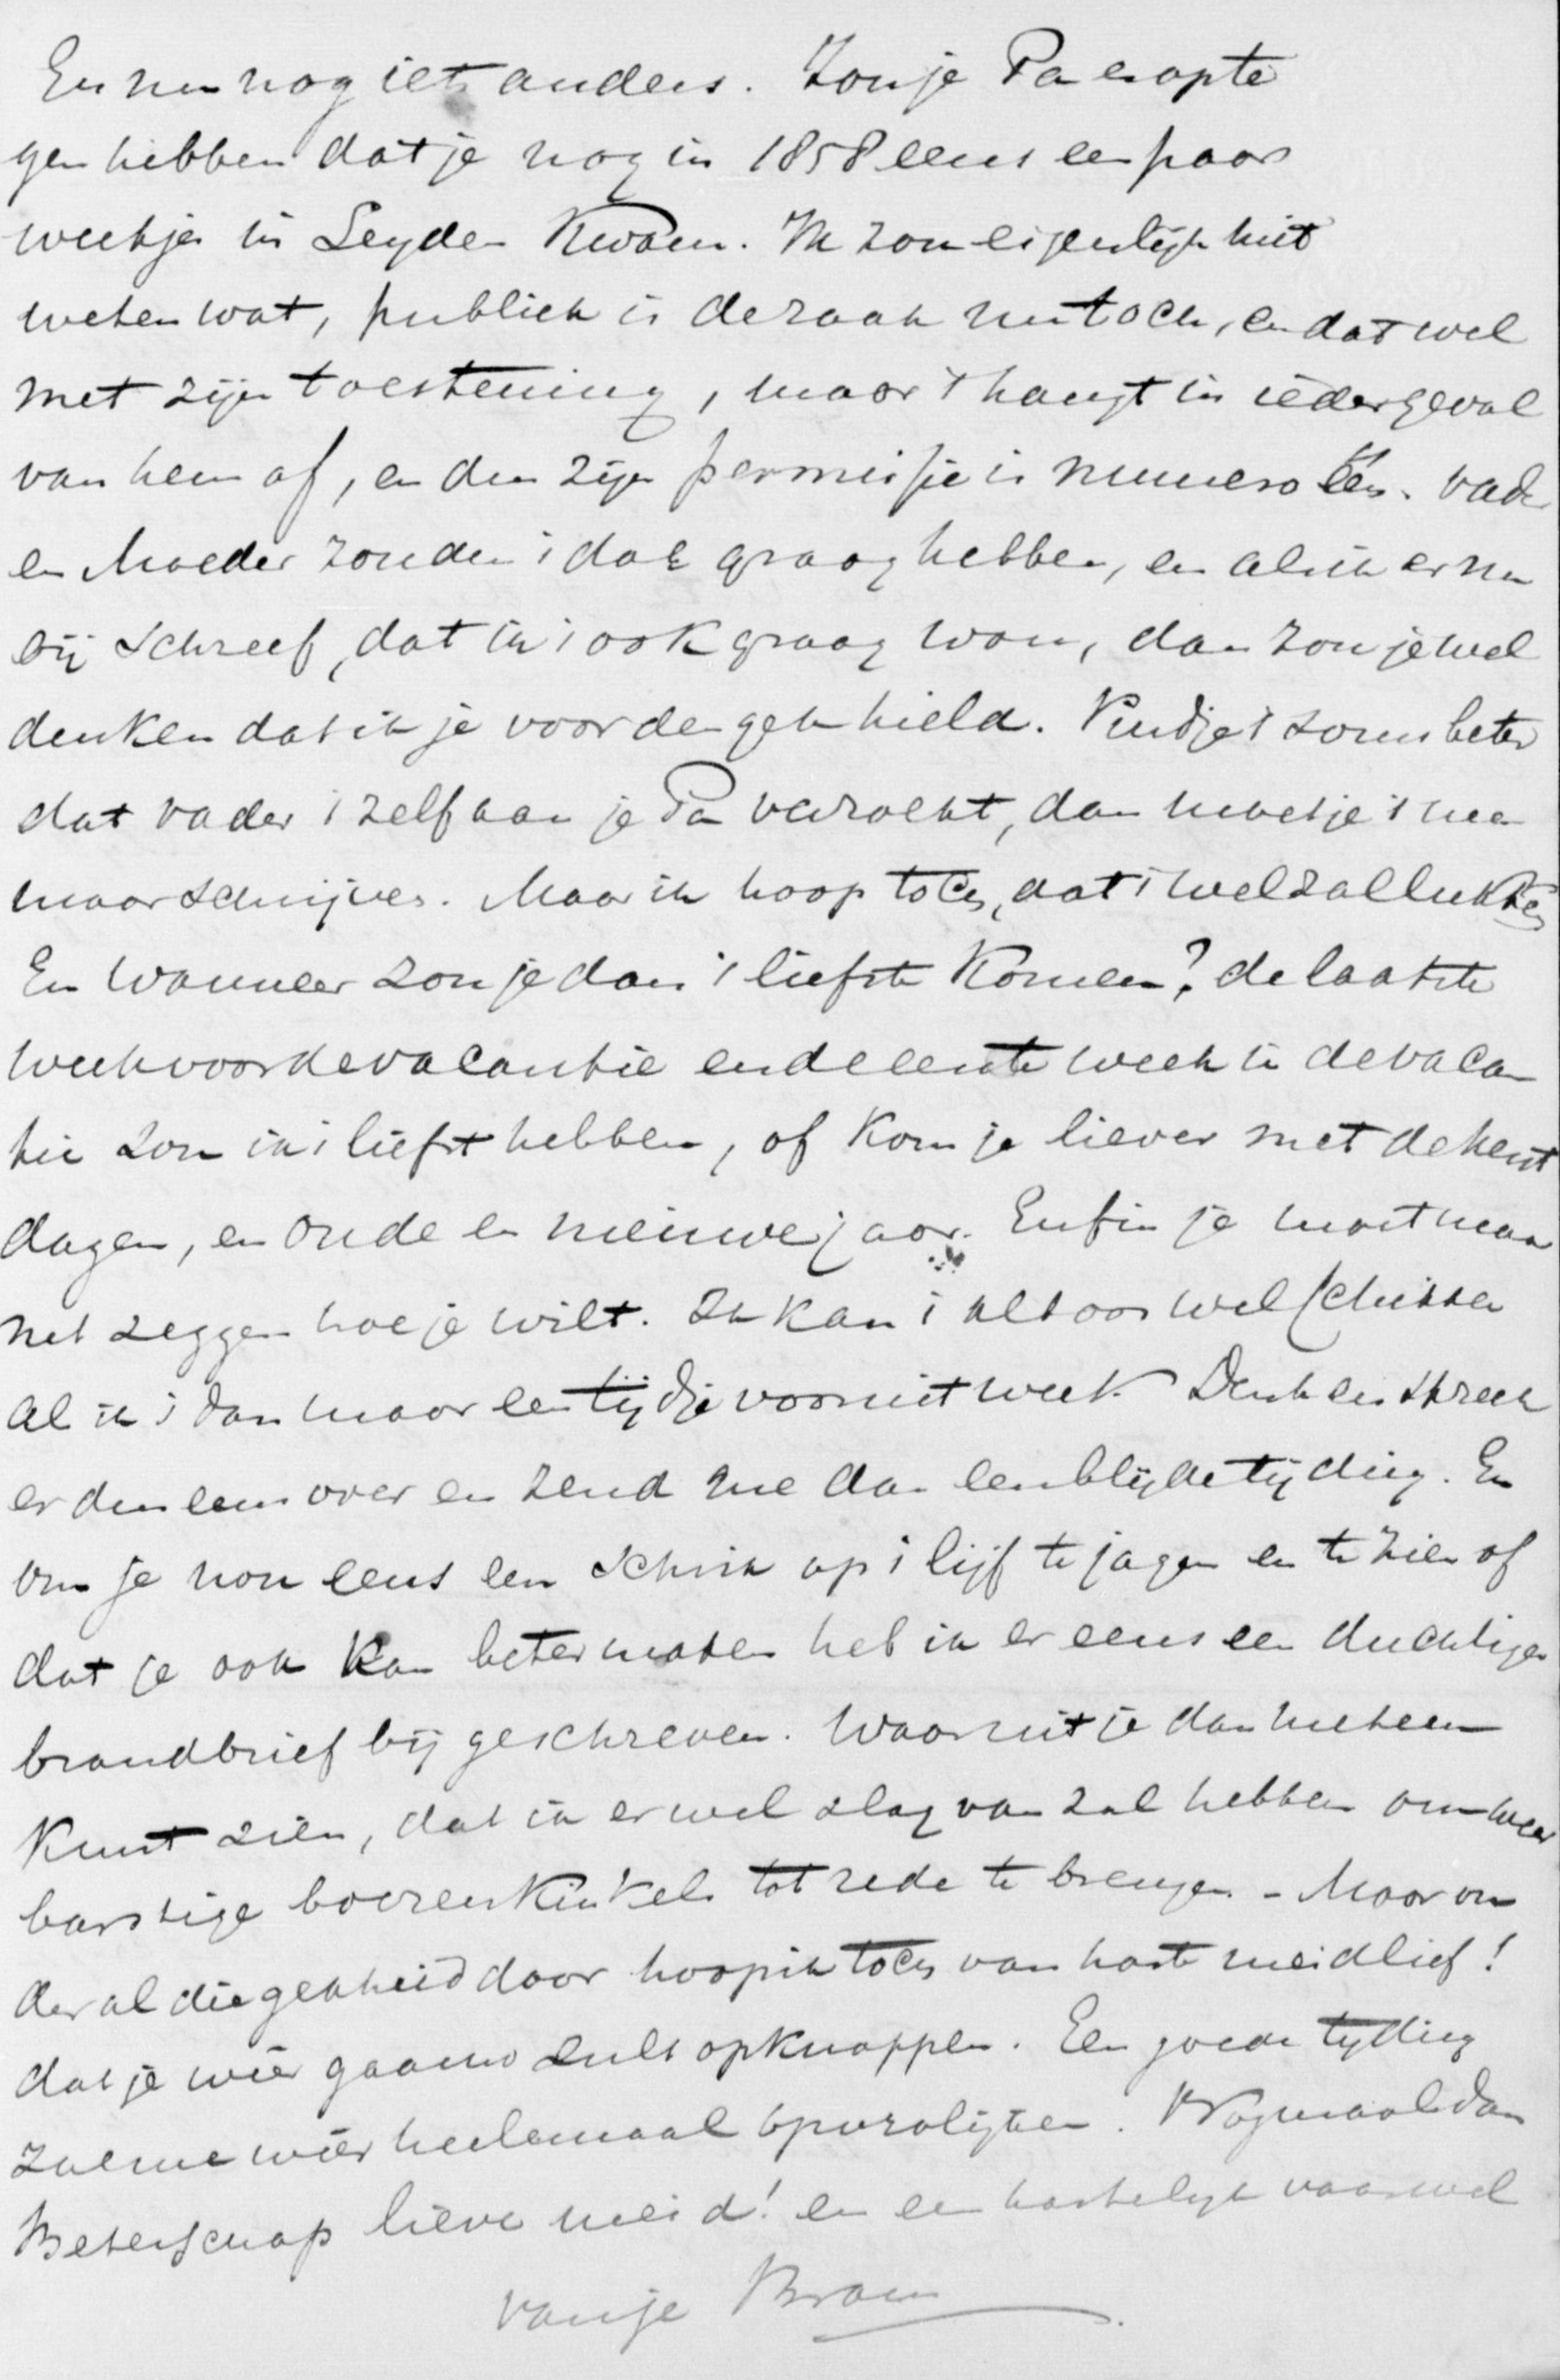 En nu nog iets anders. Zou je Pa er op te
gen hebben dat je nog in 1858 eens een paar
weekjes in Leyden kwam. Ik zou eigenlijk niet
weten wat, publiek is de zaak nu toch, en dat wel
met zijn toestening, maar 't hangt in ieder geval
van hem af, en dus zijn permissie is numero één. Vader
en Moeder zouden 't dol graag hebben, en als ik er nu
bij schreef, dat ik 't ook graag wou, dan zou je wel
denken dat ik je voor de gek hield. Vind je 't soms beter
dat vader 't zelf aan je Pa verzoekt, dan moet je 't mee
maar schrijven. Maar ik hoop toch, dat 't wel zal lukken
En wanneer zou je dan 't liefste komen? de laatste
week voor de vacantie en de eerste week in de vacan
tie zou ik 't liefst hebben, of kom je liever met de kerst
dagen, en oude en nieuwejaar. Enfin je moet maar
net zeggen hoe je wilt. Ik kan 't altoos wel schikken
als ik 't dan maar een tijdje vooruit weet. Denk en spreek
er dus eens over en zend me dan een blijde tijding. En
om je nou eens een schrik op 't lijf te jagen en te zien of
dat je ook kan beter maken heb ik er eens een duchtigen
brandbrief bij geschreven. Waaruit je dan meteen
kunt zien, dat ik er wel slag van zal hebben om weer
barstige boerenkinkels tot rede te brengen - Maar on
der al die gekheid door hoop ik toch van harte meidlief!
dat je weer gaauw zult opknappen. Een goede tijding
zal me weêr heelemaal opvrolijken. Nogmaals dan
Beterschap lieve meid! en een hartelijk vaarwel
van je Bram